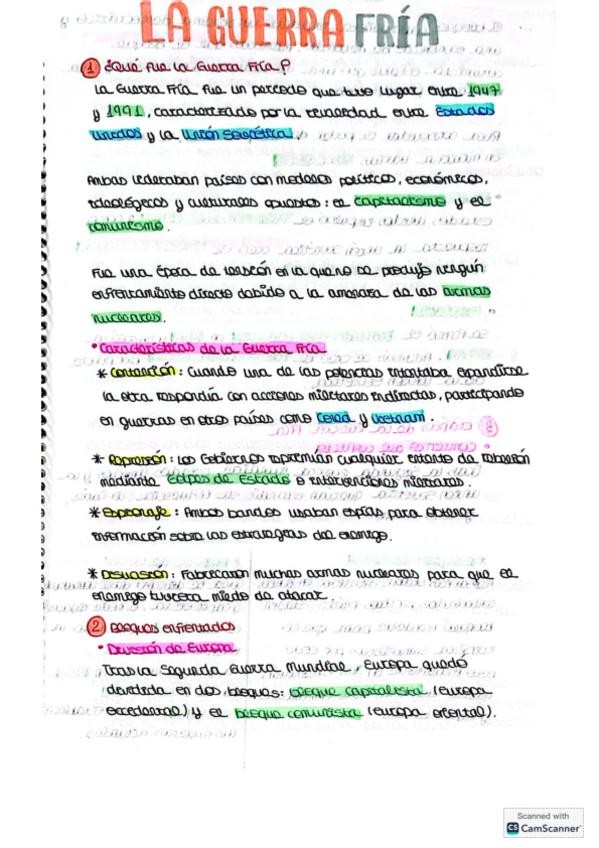 LA GUERRA FRÍA
1 ¿Qué fue la Guerra Fría?
La Guerra Fría fue un periodo que tuvo lugar entre 1947
y 1991, caracterizado por la rivalidad entre Estados
Unidos y la Unión Soviética.
Ambas lideraban países con modelos políticos, económicos,
ideológicos y culturales opuestos: el capitalismo y el
comunismo.
Fue una época de tensión en la que no se produjo ningún
enfrentamiento directo debido a la amenaza de las armas
nucleares.
• Características de la Guerra Fría
* Contención: Cuando una de las potencias intentaba expandirse
la otra respondía con acciones militares indirectas, participando
en guerras en otros países como Corea y Vietnam.
* Represión: Los Gobiernos reprimían cualquier intento de rebelión
mediante Golpes de Estado o intervenciones militares.
* Espionaje: Ambos bandos usaban espías para obtener
información sobre las estrategias del enemigo.
* Disuasión: Fabricaron muchas armas nucleares para que el
enemigo tuviera miedo de atacar.
2 Bloques enfrentados
• División de Europa
Tras la Segunda Guerra Mundial, Europa quedó
dividida en dos bloques: bloque capitalista (Europa
occidental) y el bloque comunista (Europa oriental).
Scanned with
CS CamScanner